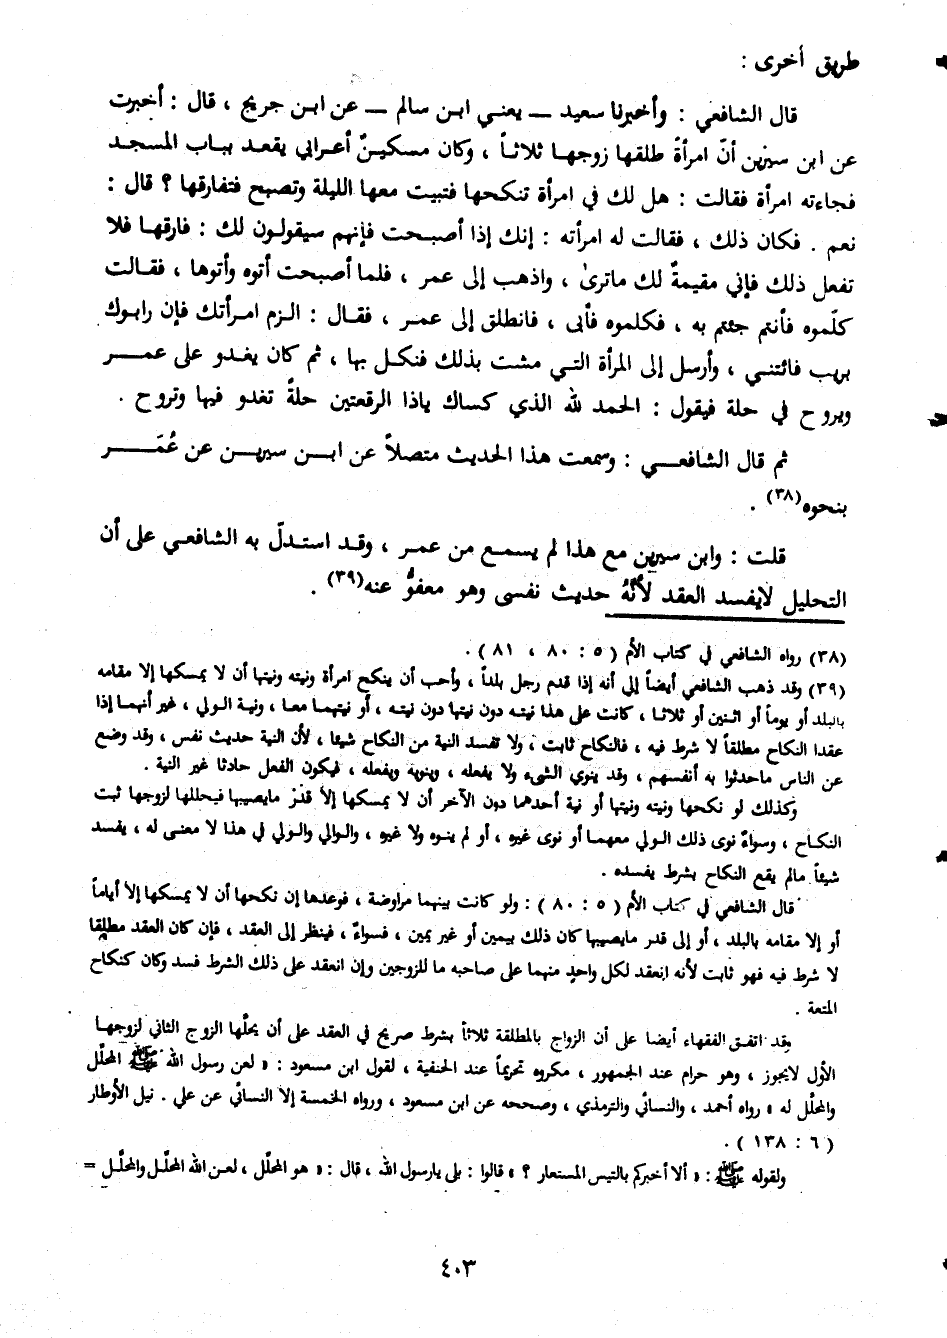 طريق أخرى :
قال الشافعي : وأخبرنا سعيد ــ يعني ابن سالم ــ عن ابن جريج ، قال : أخبرت
عن ابن سيرين أنّ امرأةً طلقها زوجها ثلاثاً ، وكان مسكينٌ أعرابي يقعد بباب المسجد
فجاءته امرأة فقالت : هل لك في امرأة تنكحها فتبيت معها الليلة وتصبح فتفارقها ؟ قال :
نعم . فكان ذلك ، فقالت له امرأته : إنك إذا أصبحت فإنهم سيقولون لك : فارقها فلا
تفعل ذلك فإني مقيمةٌ لك ماترىٰ ، واذهب إلى عمر ، فلما أصبحت أتوه وأتوها ، فقالت
كلّموه فأنتم جئتم به ، فكلموه فأبى ، فانطلق إلى عمر ، فقال : الزم امرأتك فإن رابوك
بريب فائتني ، وأرسل إلى المرأة التي مشت بذلك فنكل بها ، ثم كان يغدو على عمر
ويروح في حلة فيقول : الحمد لله الذي كساك ياذا الرقعتين حلةً تغدو فيها وتروح .
ثم قال الشافعي : وسمعت هذا الحديث متصلاً عن ابن سيرين عن عُمَر
بنحوه(٣٨) .
قلت : وابن سيرين مع هذا لم يسمع من عمر ، وقد استدلّ به الشافعي على أن
التحليل لايفسد العقد لأنَّهُ حديث نفسى وهو معفوٌّ عنه(٣٩) .
(٣٨) رواه الشافعي في كتاب الأم ( ٥ : ٨٠ ، ٨١ ) .
(٣٩) وقد ذهب الشافعي أيضاً إلى أنه إذا قدم رجل بلداً ، وأحب أن ينكح امرأة ونيته ونيتها أن لا يمسكها إلا مقامه
بالبلد أو يوماً أو اثنين أو ثلاثا ، كانت على هذا نيته دون نيتها دون نيته ، أو نيتهما معا ، ونية الولي ، غير أنهما إذا
عقدا النكاح مطلقاً لا شرط فيه ، فالنكاح ثابت ، ولا تفسد النية من النكاح شيئا ، لأن النية حديث نفس ، وقد وضع
عن الناس ماحدثوا به أنفسهم ، وقد ينوي الشىء ولا يفعله ، وينويه ويفعله ، فيكون الفعل حادثا غير النية .
وكذلك لو نكحها ونيته ونيتها أو نية أحدهما دون الآخر أن لا يمسكها إلاّ قدرَ مايصيبها فيحللها لزوجها ثبت
النكاح ، وسواءٌ نوى ذلك الولي معهما أو نوى غيره ، أو لم ينوه ولا غيره ، والوالي والولي في هذا لا معنى له ، يفسد
شيئاً مالم يقع النكاح بشرط يفسده .
قال الشافعي في كتاب الأم ( ٥ : ٨٠ ) : ولو كانت بينهما مراوضة ، فوعدها إن نكحها أن لا يمسكها إلا أياماً
أو إلا مقامه بالبلد ، أو إلى قدر مايصيبها كان ذلك بيمين أو غير يمين ، فسواءٌ ، فينظر إلى العقد ، فإن كان العقد مطلقا
لا شرط فيه فهو ثابت لأنه انعقد لكل واحدٍ منهما على صاحبه ما للزوجين وإن انعقد على ذلك الشرط فسد وكان كنكاح
المتعة .
وقد اتفق الفقهاء أيضا على أن الزواج بالمطلقة ثلاثاً بشرط صريح في العقد على أن يحلّها الزوج الثاني لزوجها
الأول لايجوز ، وهو حرام عند الجمهور ، مكروه تحريماً عند الحنفية ، لقول ابن مسعود : « لعن رسول الله ﷺ المحلّل
والمحلّل له » رواه أحمد ، والنسائي والترمذي ، وصححه عن ابن مسعود ، ورواه الخمسة إلاّ النسائي عن علي . نيل الأوطار
( ٦ : ١٣٨ ) .
ولقوله ﷺ : « ألا أخبركم بالتيس المستعار ؟ » قالوا : بلى يارسول الله ، قال : « هو المحلّل ، لعن الله المحلّل والمحلّل =
٤٠٣